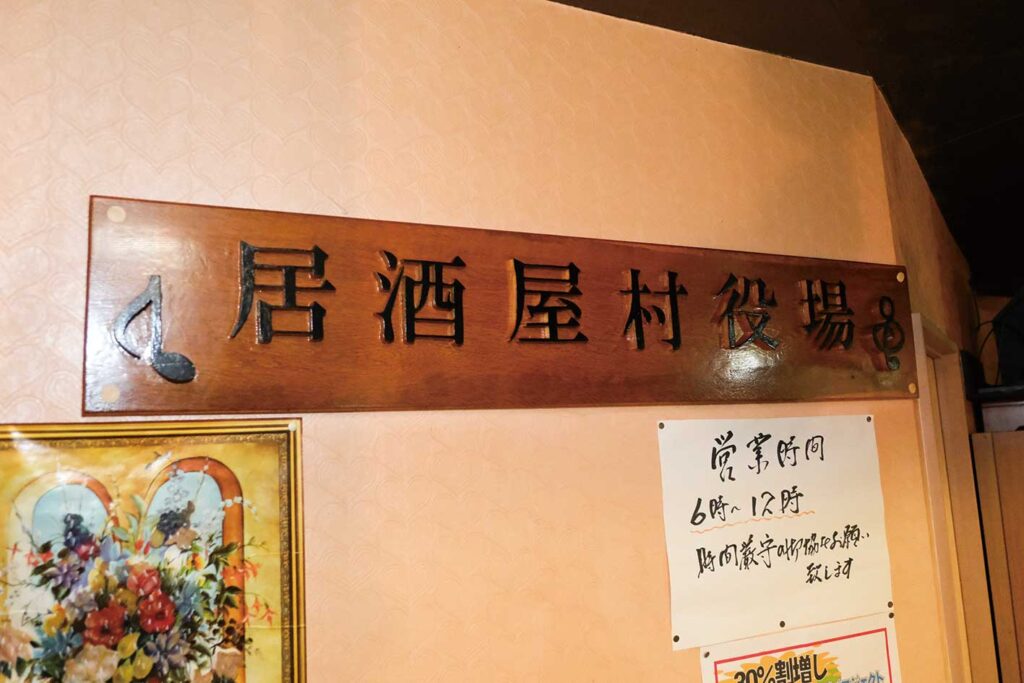 居酒屋村役場
営業時間
6時〜12時
時間厳守の御協力お願い
致します
30%割増し
ジェクト